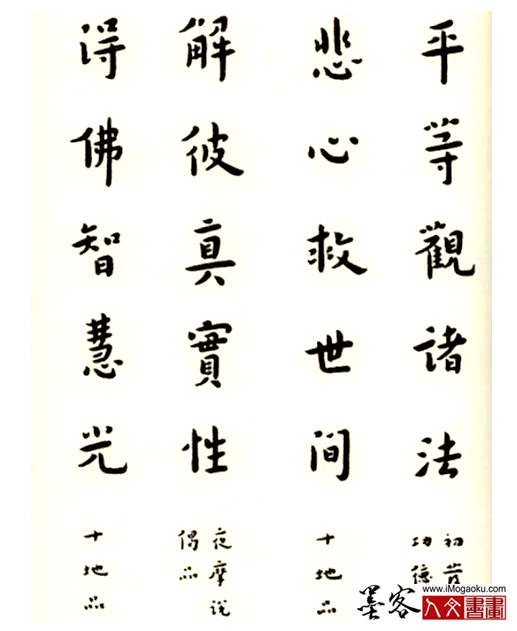 平等觀諸法
初發
功德
悲心救世間
十地品
解彼真實性
夜摩說
偈品
得佛智慧光
十地品
墨客
www.iMogaoku.com
人文書畫